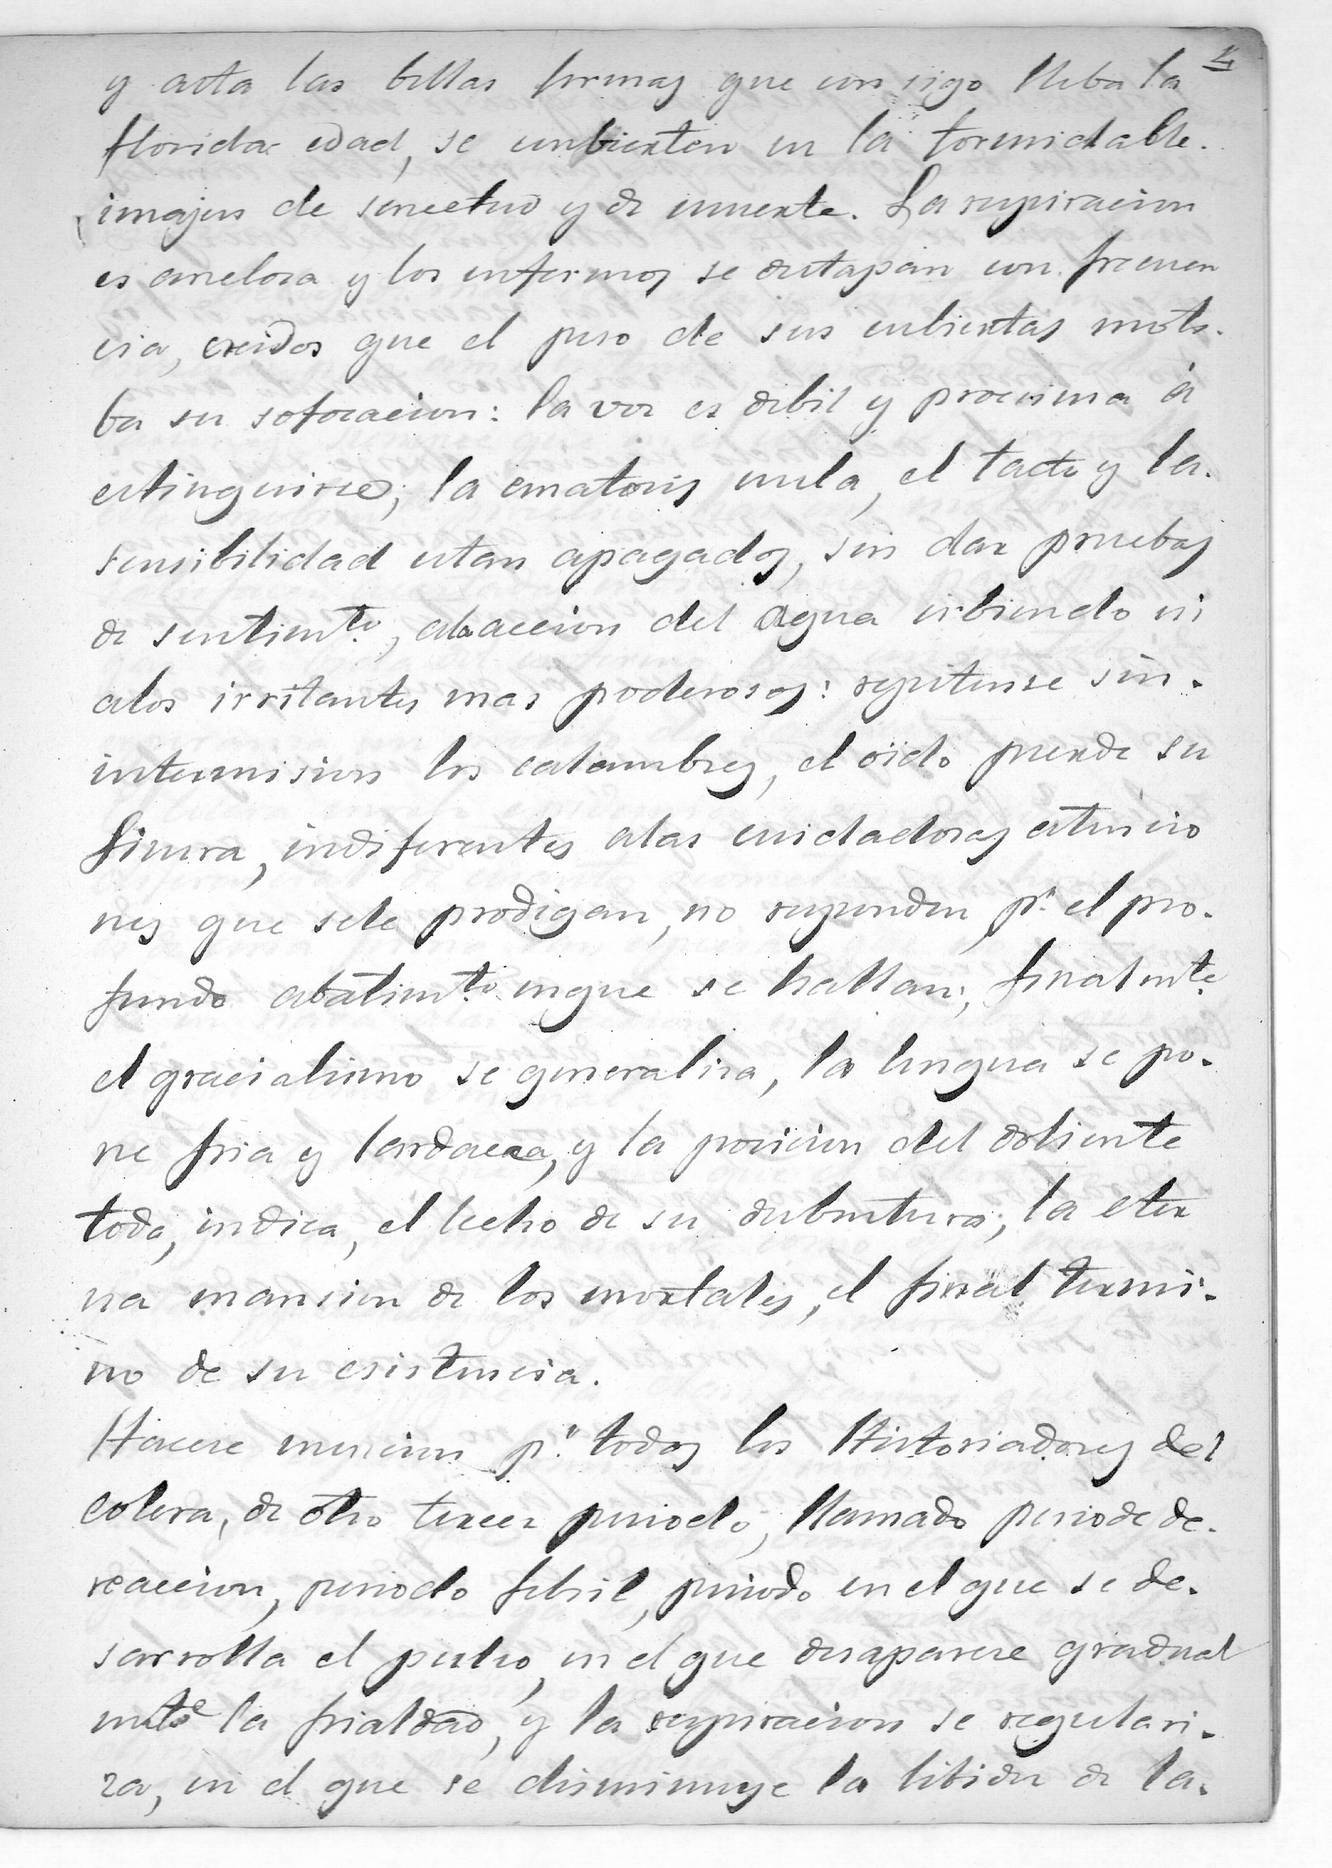 4
y asta las bellas formas que consigo lleba la
florida edad, se conbierten en la formidable.
imajen de senectud y de muerte. La respiracion
es anelosa y los enfermos se destapan con frecuen
cia, creidos que el peso de sus cubiertas moti.
ba su sofocacion: la voz es debil y procsima á
estinguirse; la ematosis nula, el tacto y la.
sensibilidad estan apagados, sin dar pruebas
de sentimto, ala accion del agua irbiendo ni
alos irritantes mas poderosos: repitense sin.
intermision los calambres, el oido pierde su
finura, indiferentes alas cuidadosas atencio
nes que sele prodigan, no responden, pr. el pro.
fundo abatimto. enque se hallan; finalmte.
el gracialismo se generaliza, la lengua se po.
ne fria y lardacea, y la posicion del doliente
todo, indica, el lecho de su desbentura; la eter
na mansion de los mortales, el final termi.
no de su esistencia.
Hacese mencion pr. todos los Historiadores del
colera, de otro tercer periodo, llamado periodo de.
reaccion, periodo febril, periodo en el que se de.
sarrolla el pulso, en el que desaparese gradual
mte la frialdad, y la respiracion se regulari.
za, en el que se disminuye la libidez de la.